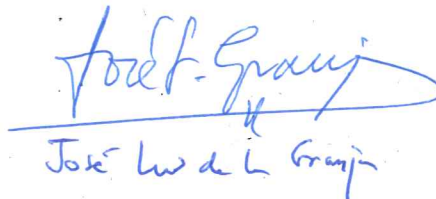 José L. Granja
José Luis de la Granja